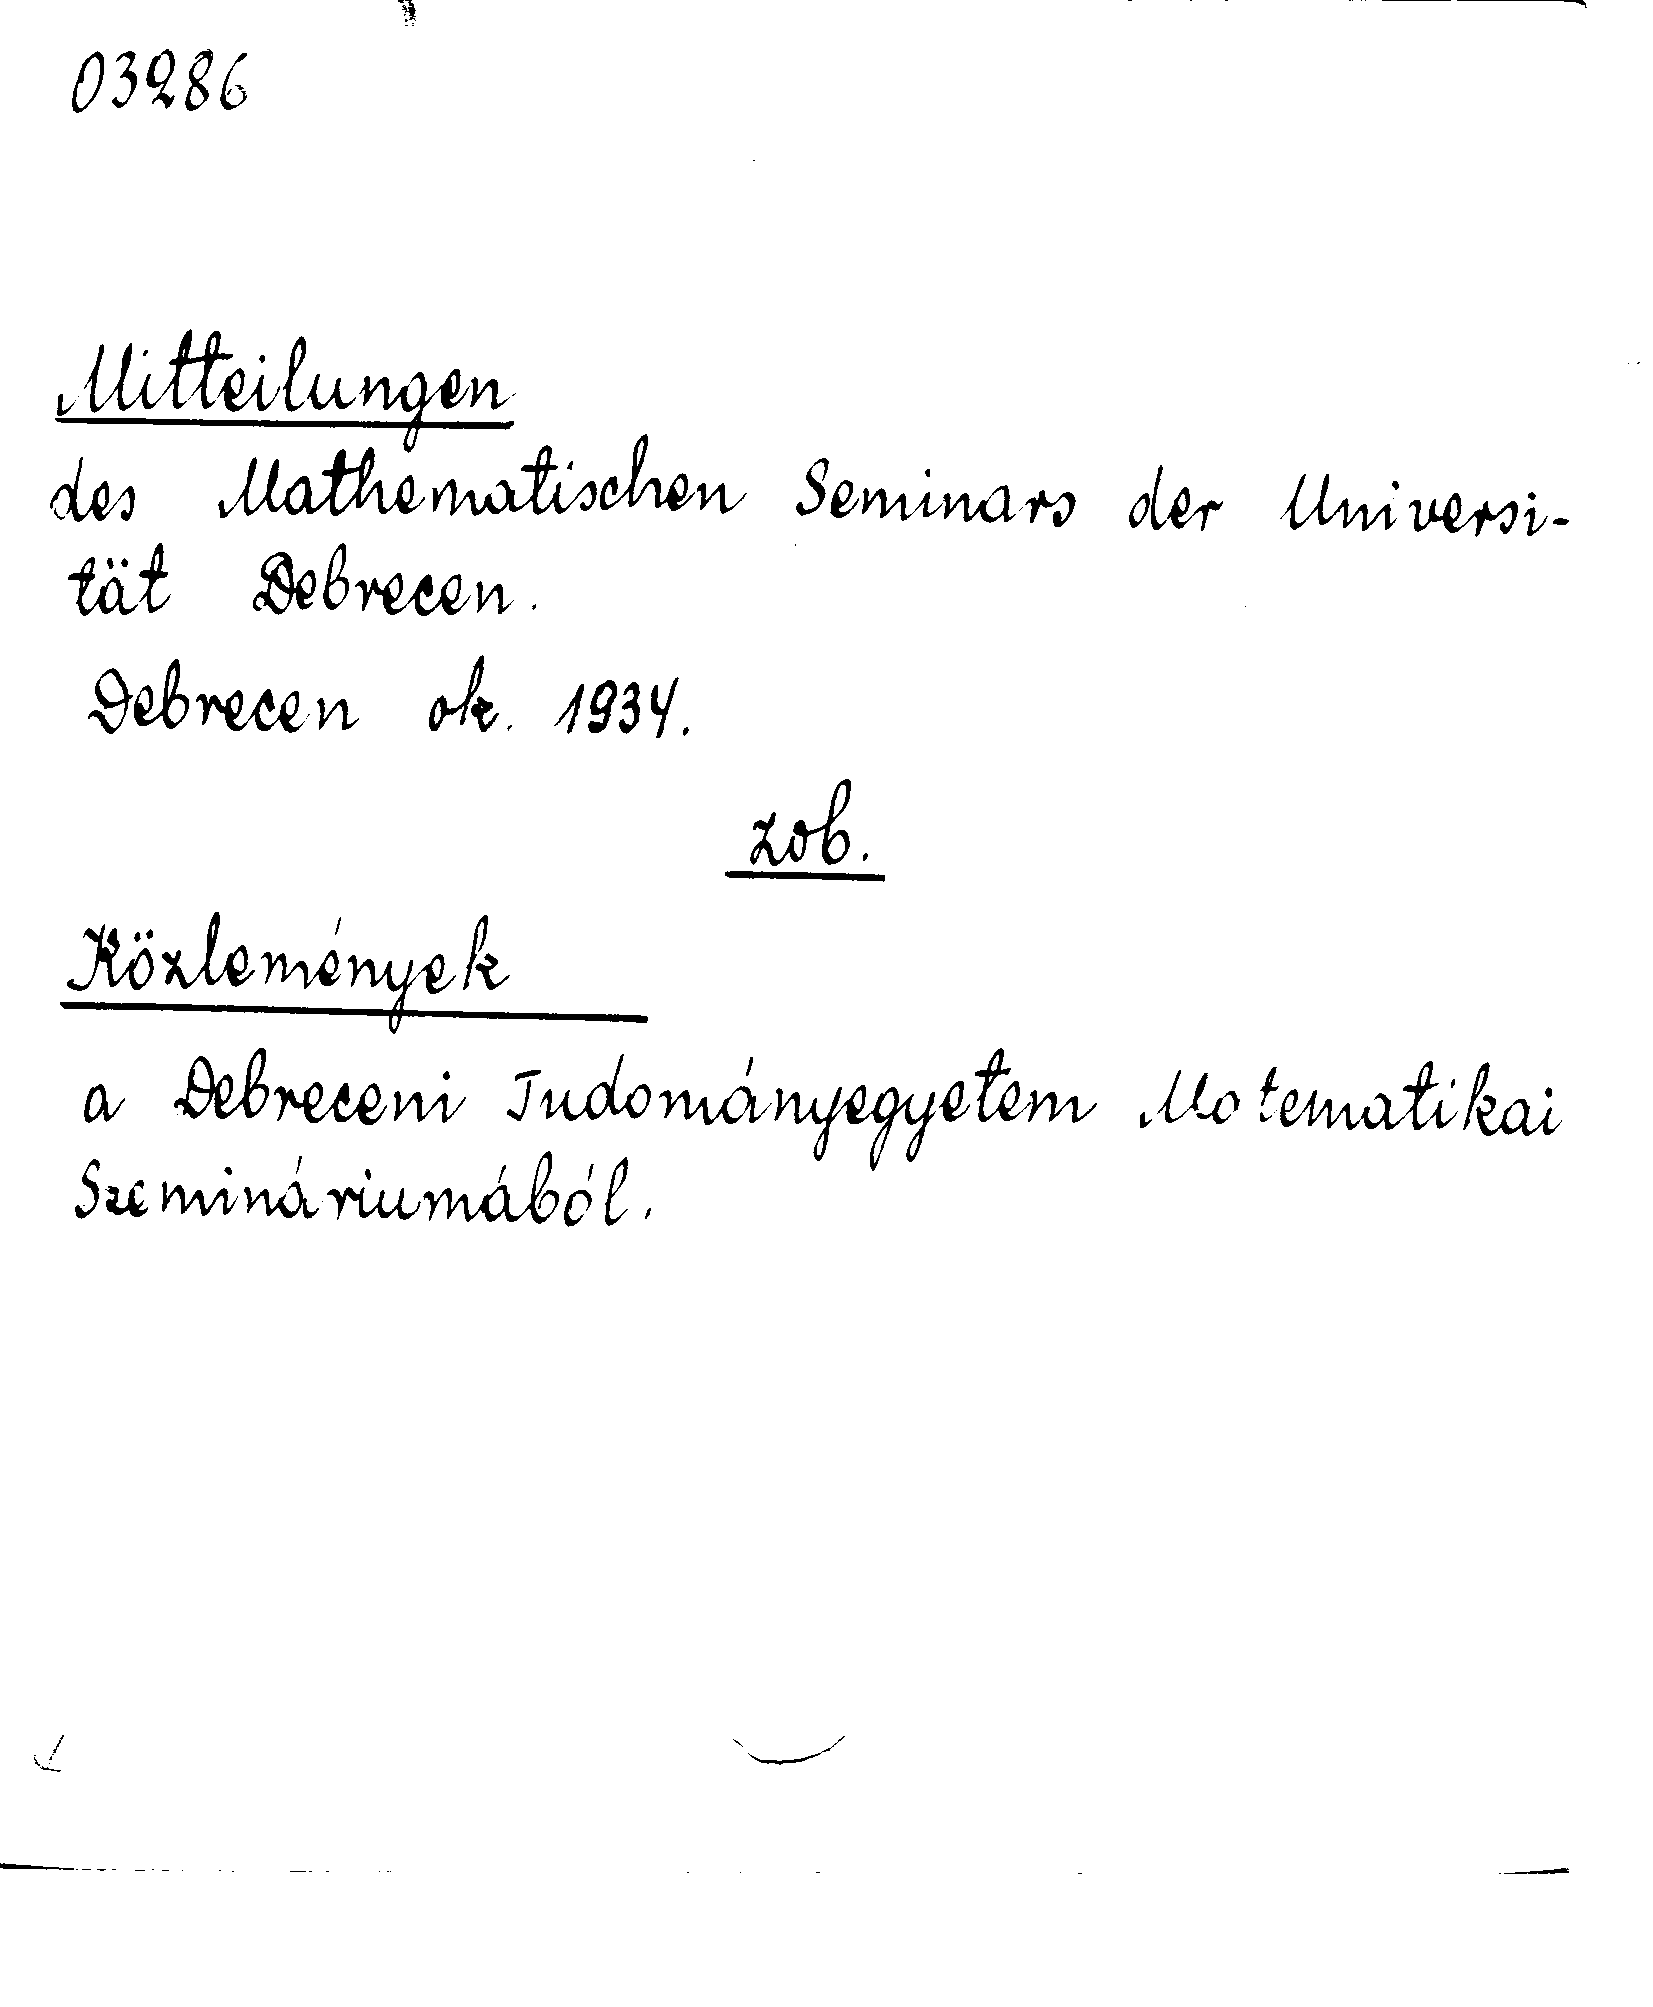 03286
Mitteilungen
des Mathematischen Seminars der Universi-
tät Debrecen.
Debrecen ok. 1934.
zob.
Közlemények
a Debreceni Tudományegyetem Motematikai
Szemináriumából.